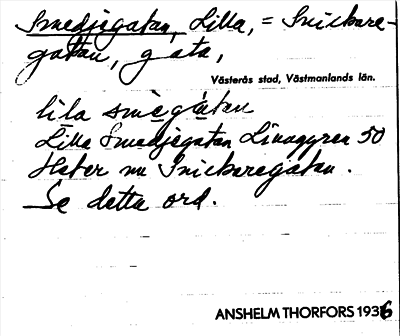 Smedjegatan, Lilla, = Snickare-
gatan, gata,
Västerås stad, Västmanlands län.
lila smegatan
Lilla Smedjegatan Linaggren 50
Heter nu Snickaregatan.
Se detta ord.
ANSHELM THORFORS 1936